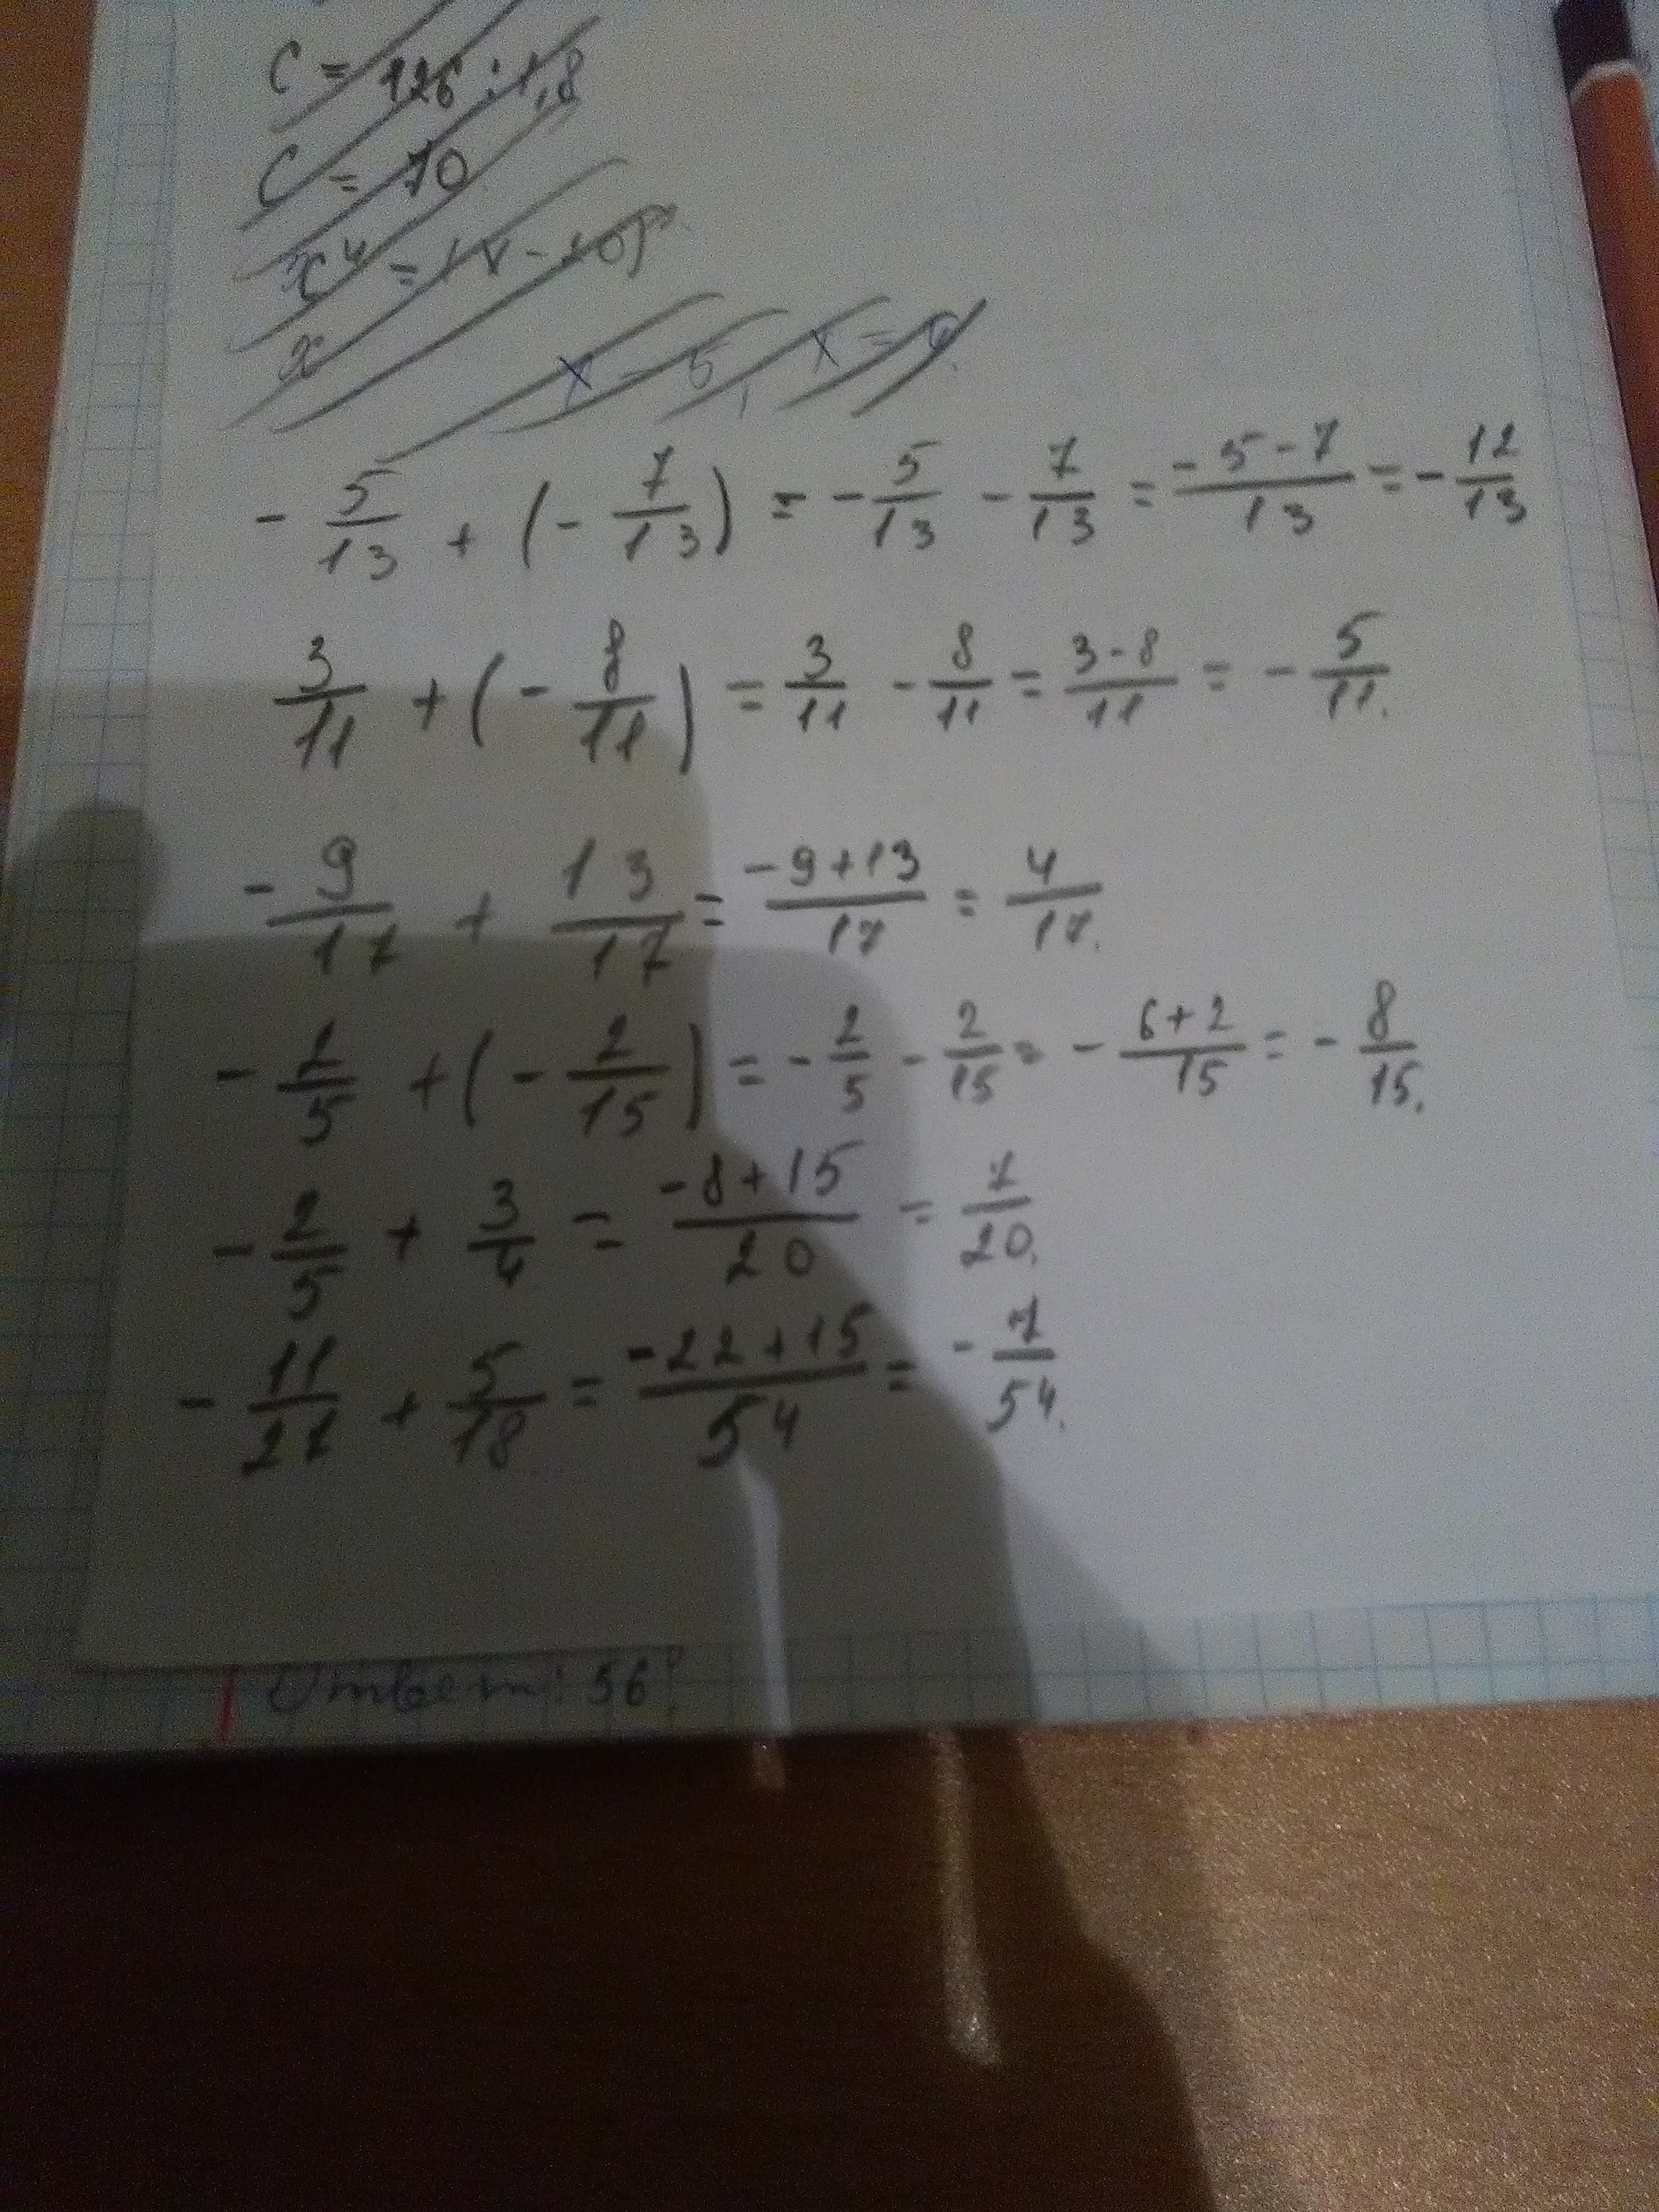 c = 126 : 1,8
c = 70
x⁴ =
x
x = 5, x =
- 5/13 + (- 7/13) = - 5/13 - 7/13 = (-5-7)/13 = - 12/13
3/11 + (- 8/11) = 3/11 - 8/11 = (3-8)/11 = - 5/11.
- 9/17 + 13/17 = (-9+13)/17 = 4/17.
- 2/5 + (- 2/15) = - 2/5 - 2/15 = - (6+2)/15 = - 8/15.
- 2/5 + 3/4 = (-8+15)/20 = 7/20.
- 11/27 + 5/18 = (-22+15)/54 = - 7/54.
Ответ: 56